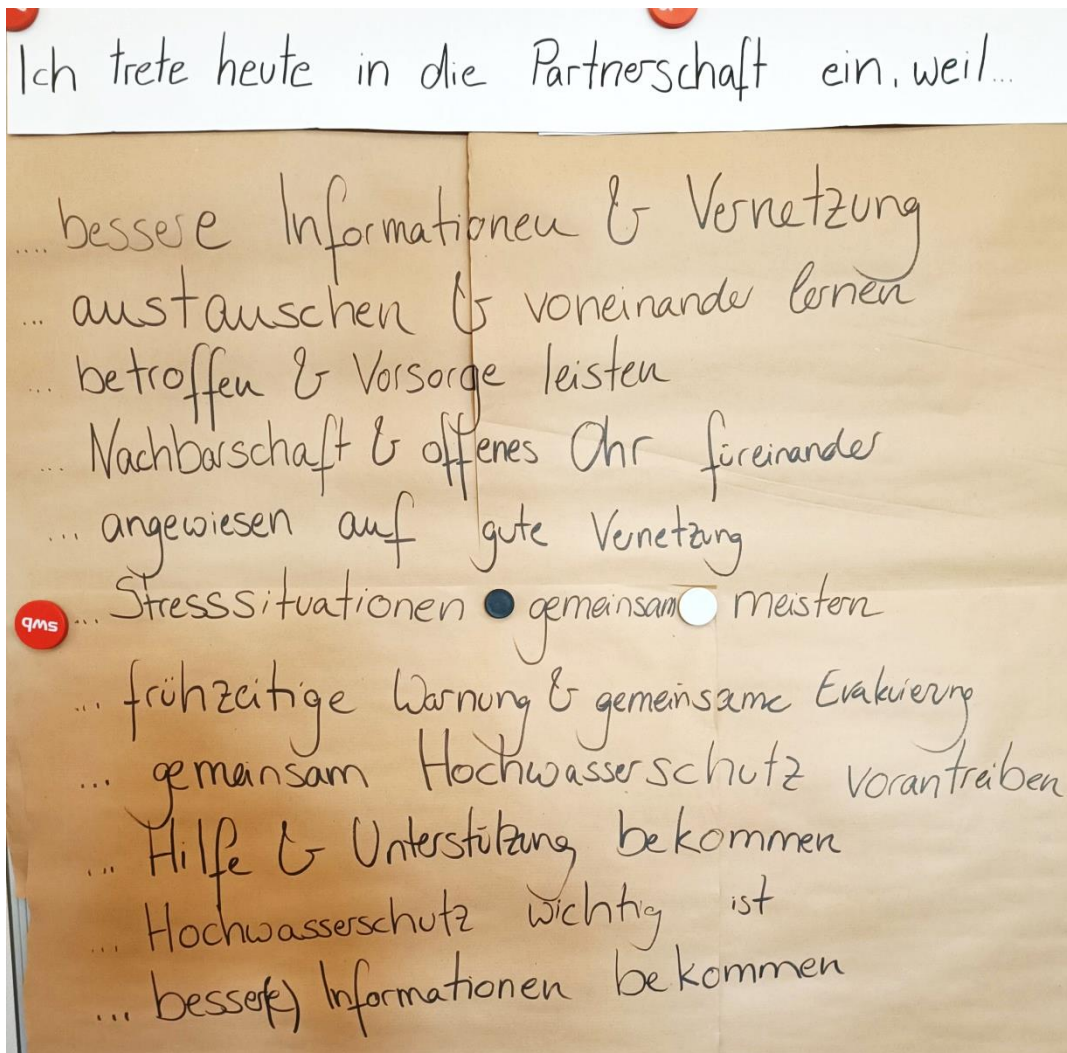 Ich trete heute in die Partnerschaft ein, weil...
.... bessere Informationen & Vernetzung
... austauschen & voneinander lernen
... betroffen & Vorsorge leisten
... Nachbarschaft & offenes Ohr füreinander
... angewiesen auf gute Vernetzung
... Stresssituationen gemeinsam meistern
swb
... frühzeitige Warnung & gemeinsame Evakuierung
... gemeinsam Hochwasserschutz vorantreiben
... Hilfe & Unterstützung bekommen
... Hochwasserschutz wichtig ist
... besser(e) Informationen bekommen